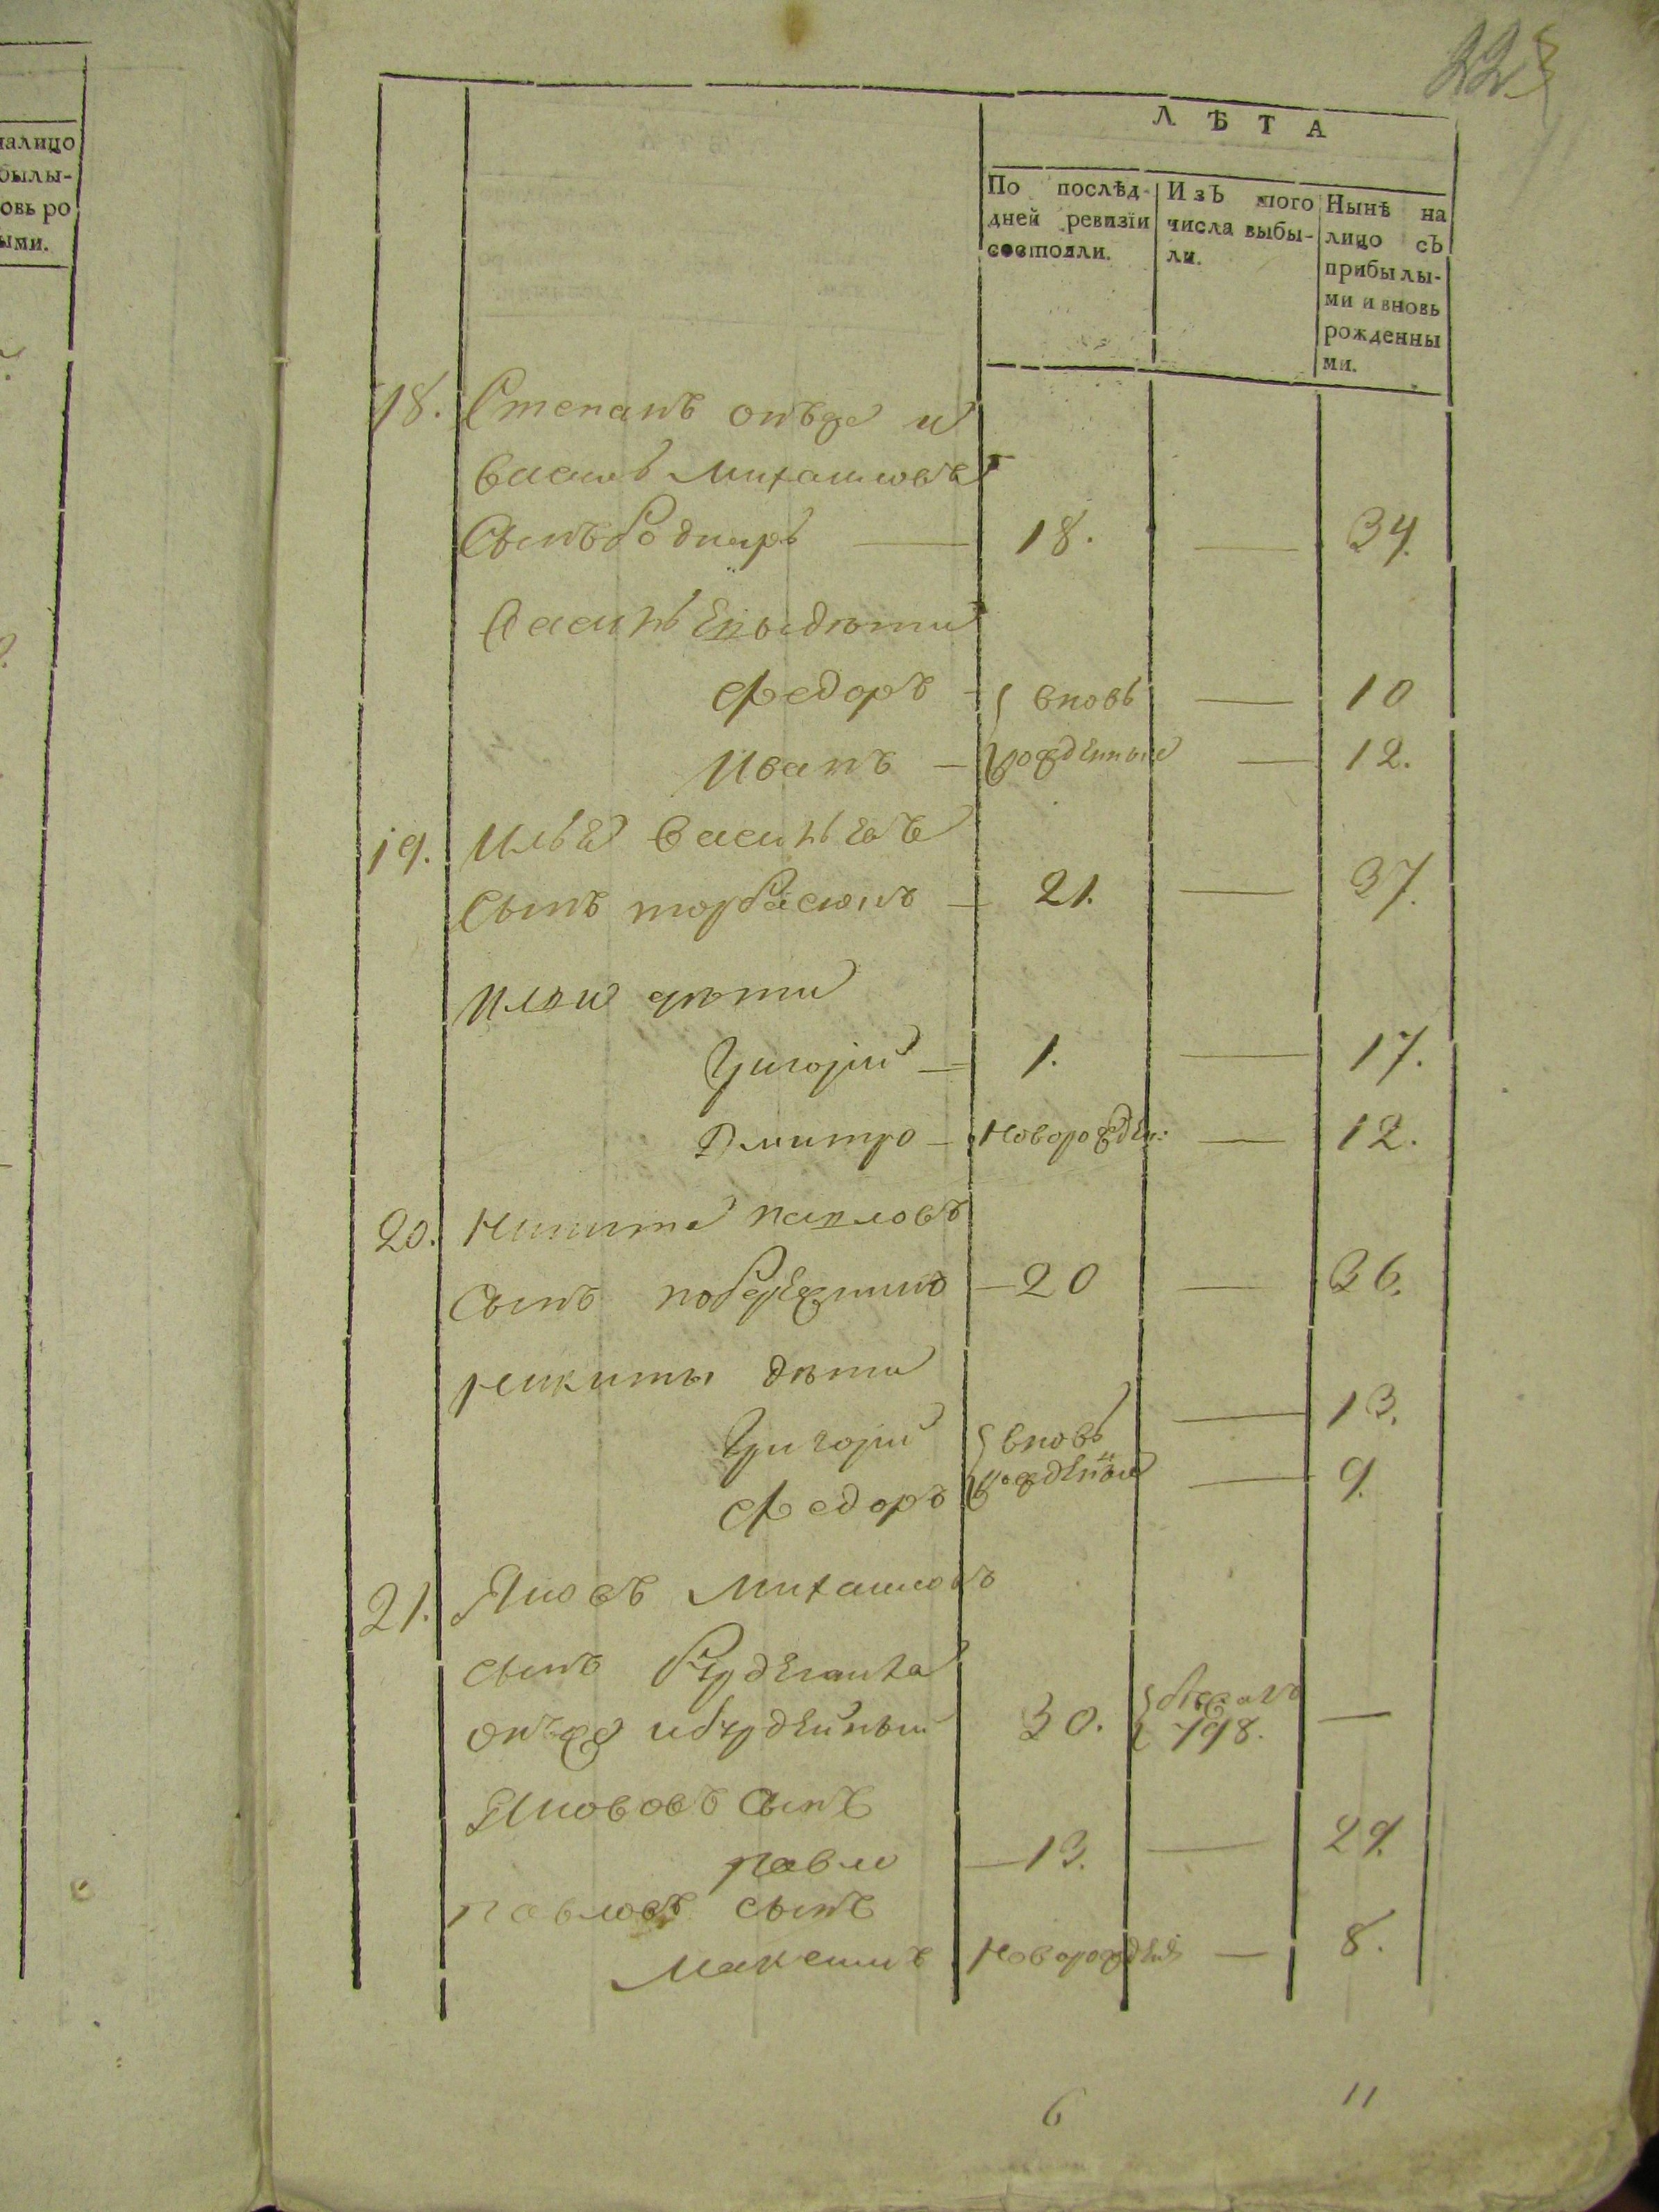 налицо
былы-
овь ро
ыми.
223
ЛѢТА
По послѣд-
дней ревизіи
состояли.
Изъ того
числа выбы-
ли.
Нынѣ на
лицо съ
прибылы-
ми и вновь
рожденны
ми.
18. Степанъ онъже и
Василь Михайловъ
сынъ Боднарь — 18. — 34.
Василь Евы дѣти
Федоръ — вновь — 10
Иванъ — рожденные — 12.
19. Илья Васильевъ
сынъ — 21. — 37.
Ильи дѣти
Григорій — 1. — 17.
Дмитро — новорожден: — 12.
20. Никита Павловъ
сынъ побережник — 20 — 36.
Никиты дѣти
Григорій вновь — 13.
Федоръ рожденные — 9.
21. Яковъ Михайловъ
сынъ
онъже 30. бѣжалъ 798. —
Якововъ сынъ
Павло — 13. — 29.
Павловъ сынъ
Максимъ новорожден — 8.
6 11